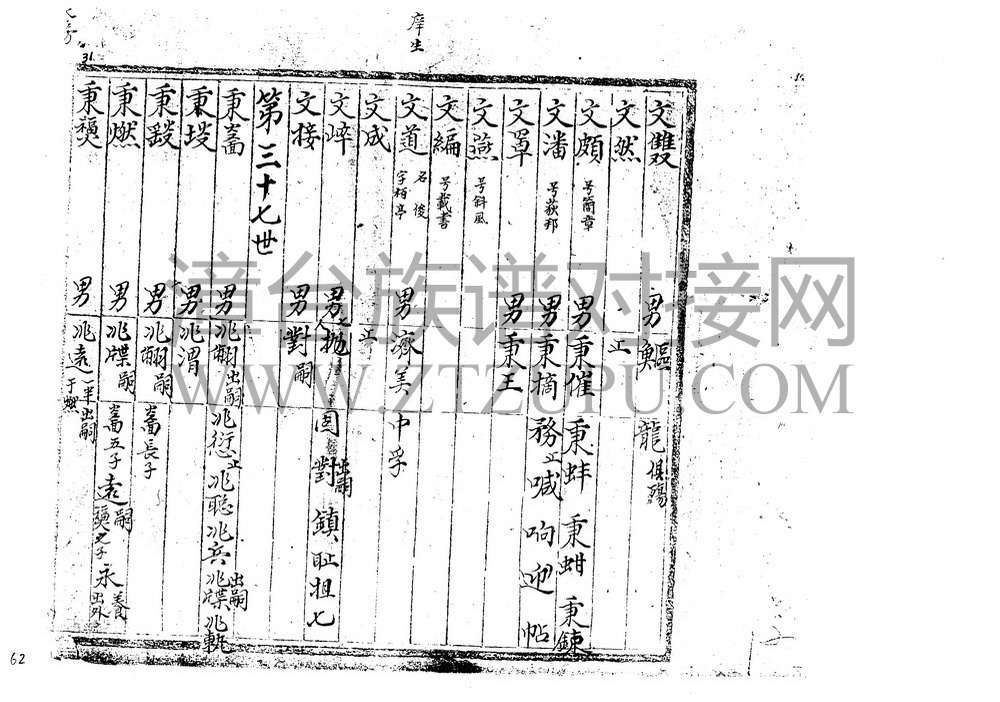 庠生
31
文雙 男 鰸 龍 俱殤
文然 止
文頗 号簡章 男 秉催 秉蚌 秉蚶 秉鍊
文潘 号荻邦 男 秉摘 務止 喊 响 迎 帖
文罩 男 秉王
文燕 号斜風
文編 号載書
文道 名俊 字栢亭 男 濂美 中孚
文成 止
文崪 男 拋 固 對出嗣 鎮 耻 担 七
文接 男 對嗣
第三十七世
秉嵩 男 兆翩出嗣 兆愆止 兆聡 兆兵 兆牒出嗣 兆軏
秉埈 男 兆渭
秉毀 男 兆翩嗣 嵩長子
秉燃 男 兆牒嗣 嵩五子 遠嗣 之子 永養出外
秉 男 兆遠 一半出嗣于燃
62
漳台族谱对接网
WWW.ZTZUPU.COM